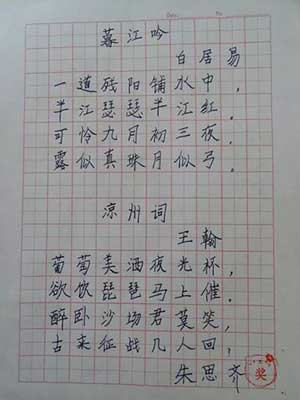 暮江吟
白居易
一道残阳铺水中，
半江瑟瑟半江红。
可怜九月初三夜，
露似真珠月似弓。
凉州词
王翰
葡萄美酒夜光杯，
欲饮琵琶马上催。
醉卧沙场君莫笑，
古来征战几人回，
朱思齐
奖